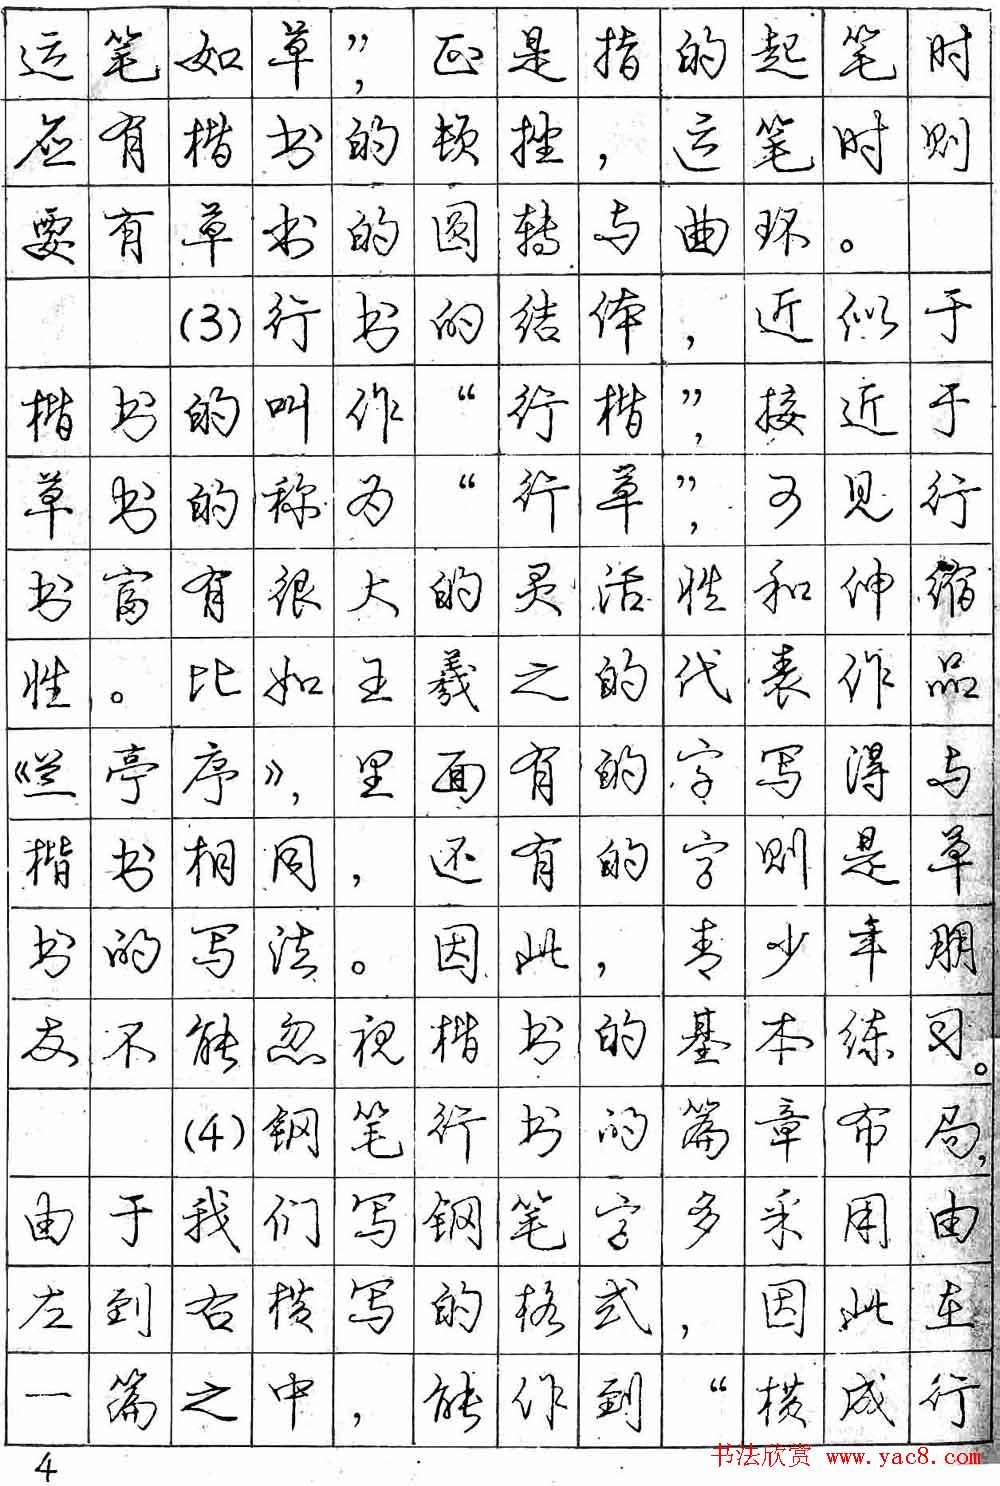 运笔如草”，正是指的起笔时
应有楷书的顿挫，运笔时则
要有草书的圆转与曲环。
(3)行书的结体，近似于
楷书的叫作“行楷”，接近于
草书的称为“行草”，可见行
书富有很大的灵活性和伸缩
性。比如王羲之的代表作品
《兰亭序》，里面有的字写得与
楷书相同，还有的字则是草
书的写法。因此，青少年朋
友不能忽视楷书的基本练习。
(4)钢笔行书的篇章布局，
由于我们写钢笔字多采用由
左到右横写的格式，因此在
一篇之中，能作到“横成行
4
书法欣赏 www.yac8.com